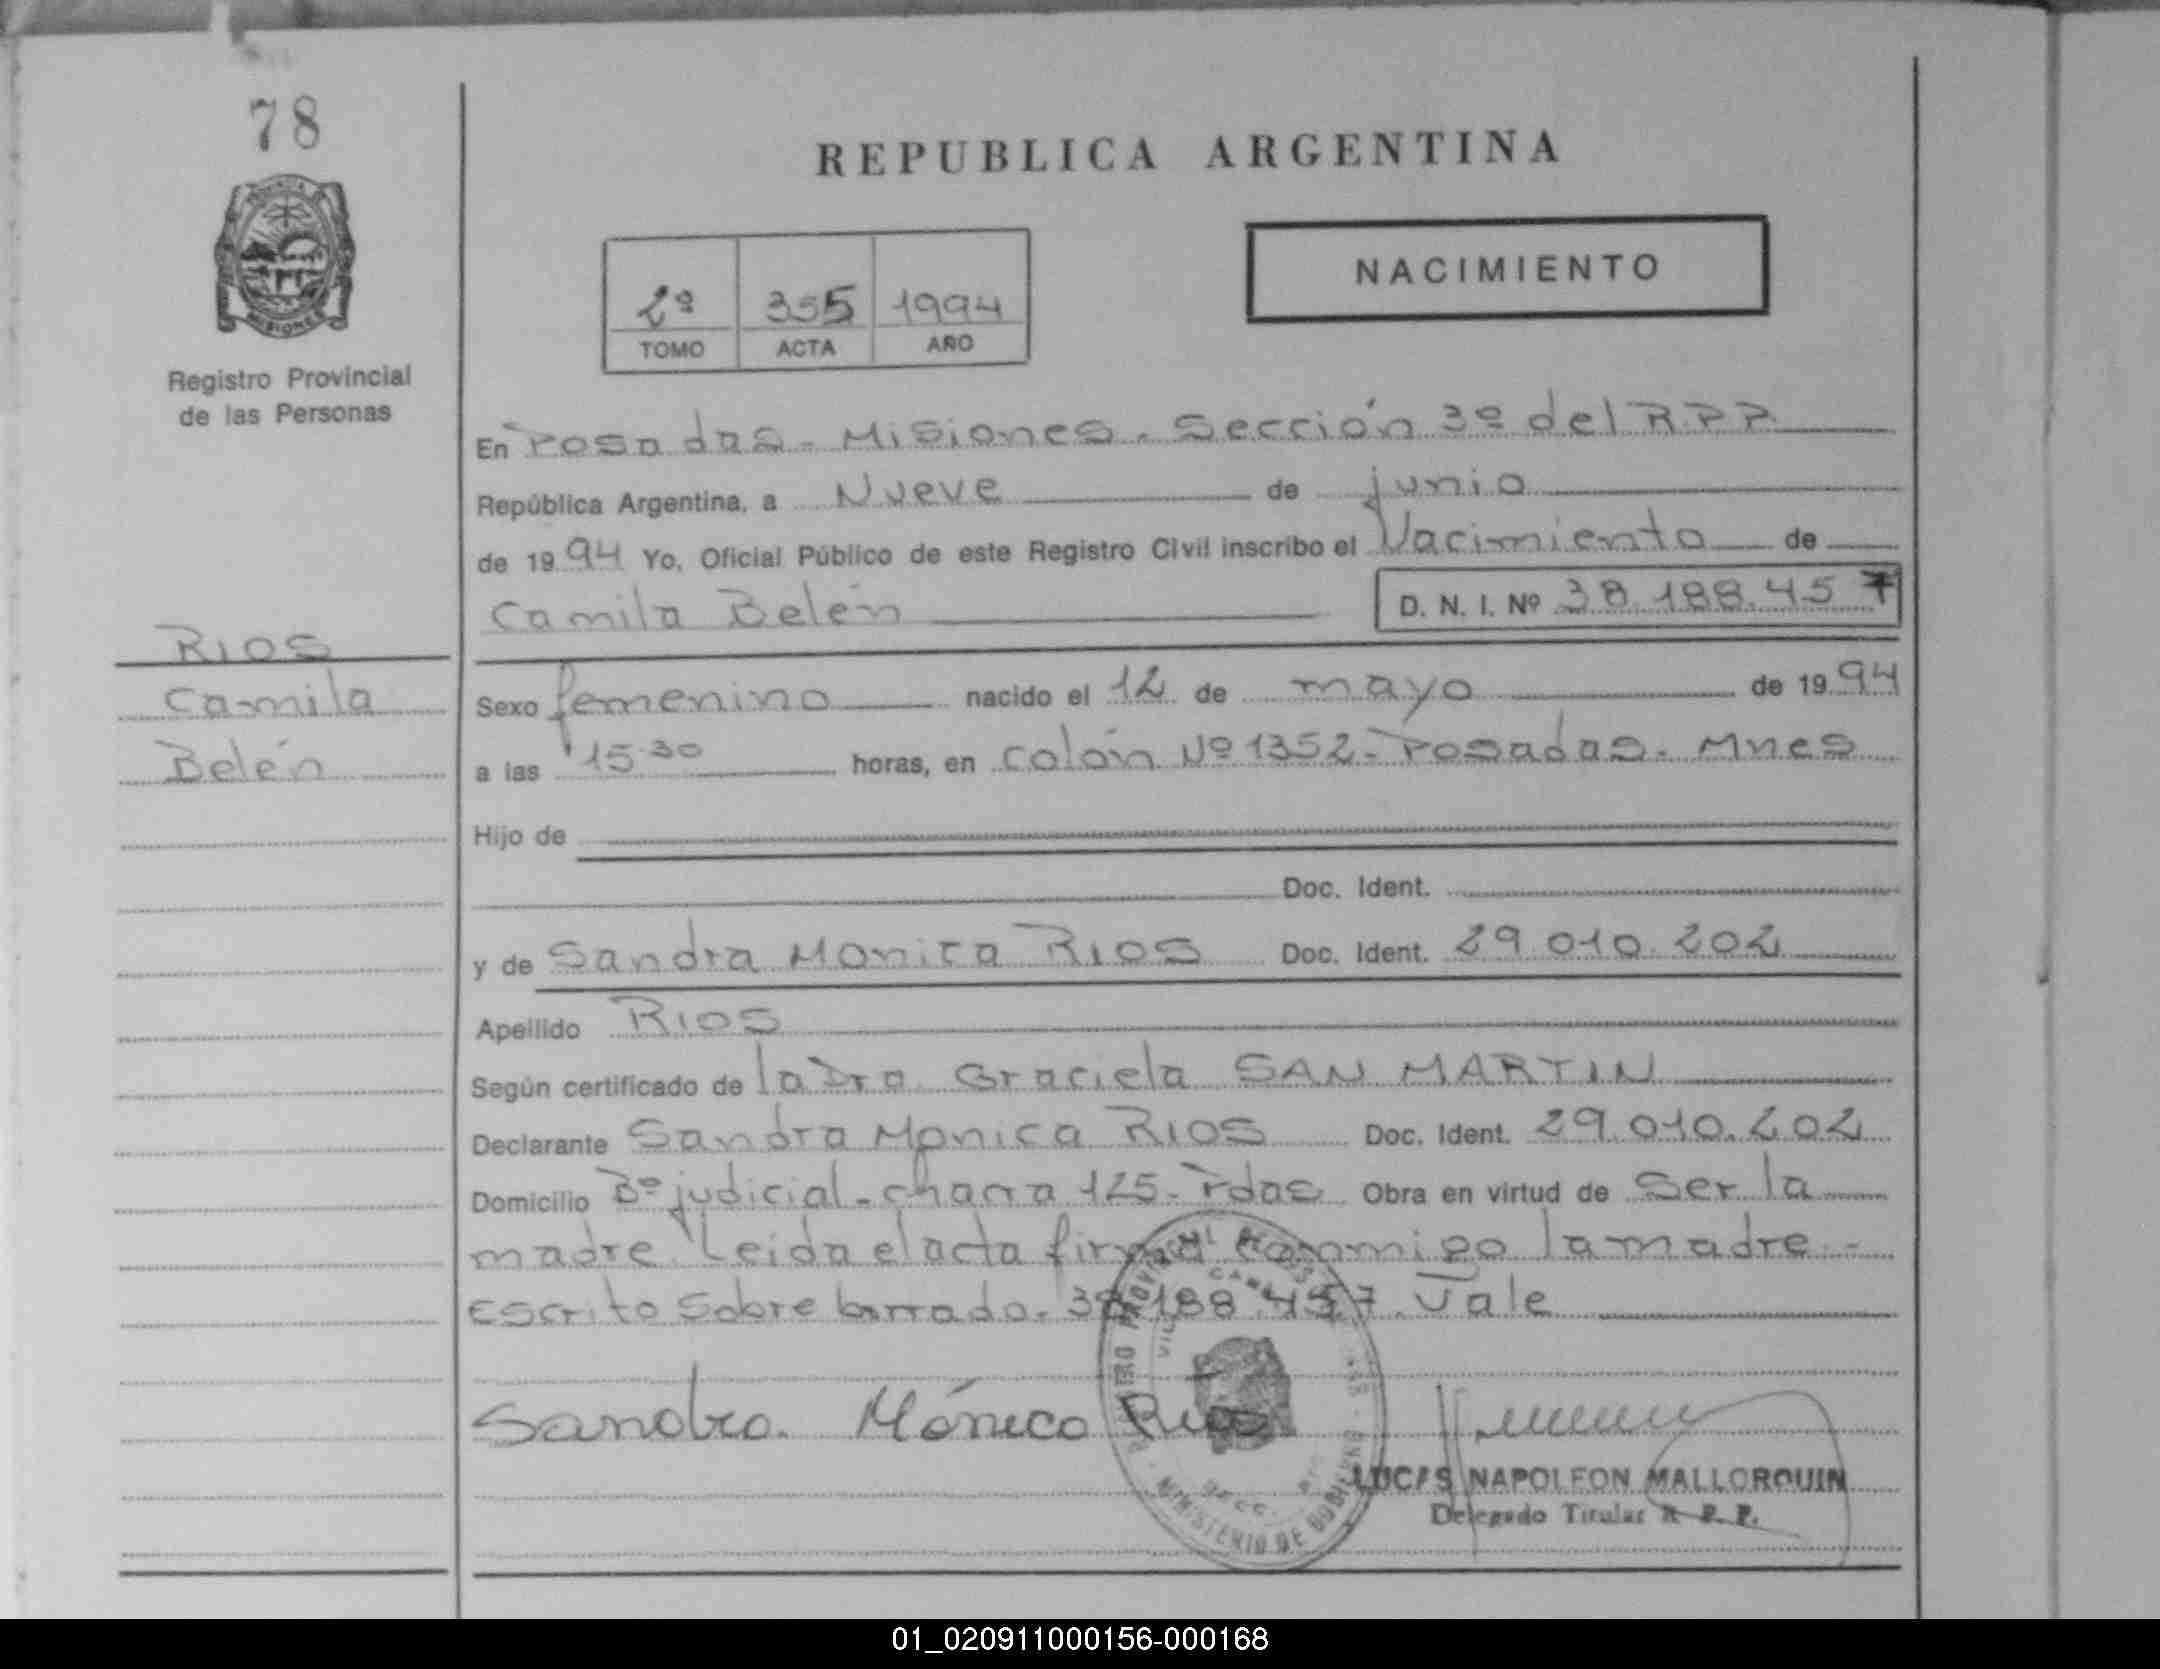 78
REPUBLICA ARGENTINA
MISIONES
Registro Provincial
de las Personas
2º 355 1994
TOMO ACTA AÑO
NACIMIENTO
En Posadas - Misiones - Sección 3º del R.P.P.
República Argentina, a Nueve de junio
de 1994 Yo, Oficial Público de este Registro Civil inscribo el Nacimiento de
Camila Belén D. N. I. Nº 38.188.457
RIOS
Camila
Belén
Sexo femenino nacido el 12 de mayo de 1994
a las 15:30 horas, en Colón Nº 1352 - Posadas - Mnes
Hijo de
Doc. Ident.
y de Sandra Monica RIOS Doc. Ident. 29.010.202
Apellido RIOS
Según certificado de la Dra Graciela SAN MARTIN
Declarante Sandra Monica RIOS Doc. Ident. 29.010.202
Domicilio Bº judicial - chacra 125 - Pdas Obra en virtud de ser la
madre. Leida el acta firma conmigo la madre -
Escrito sobre borrado - 38.188.457. Vale
Sandra Mónica Rios
MINISTERIO DE GOBIERNO
LUCAS NAPOLEON MALLORQUIN
Delegado Titular R. P. P.
01_020911000156-000168